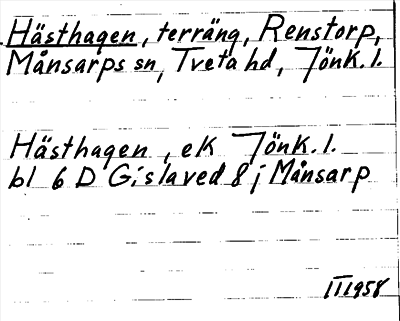 Hästhagen, terräng, Renstorp,
Månsarps sn, Tveta hd, Jönk. l.
Hästhagen, ek Jönk. l.
bl 6 D Gislaved 8 j Månsarp
III 1958